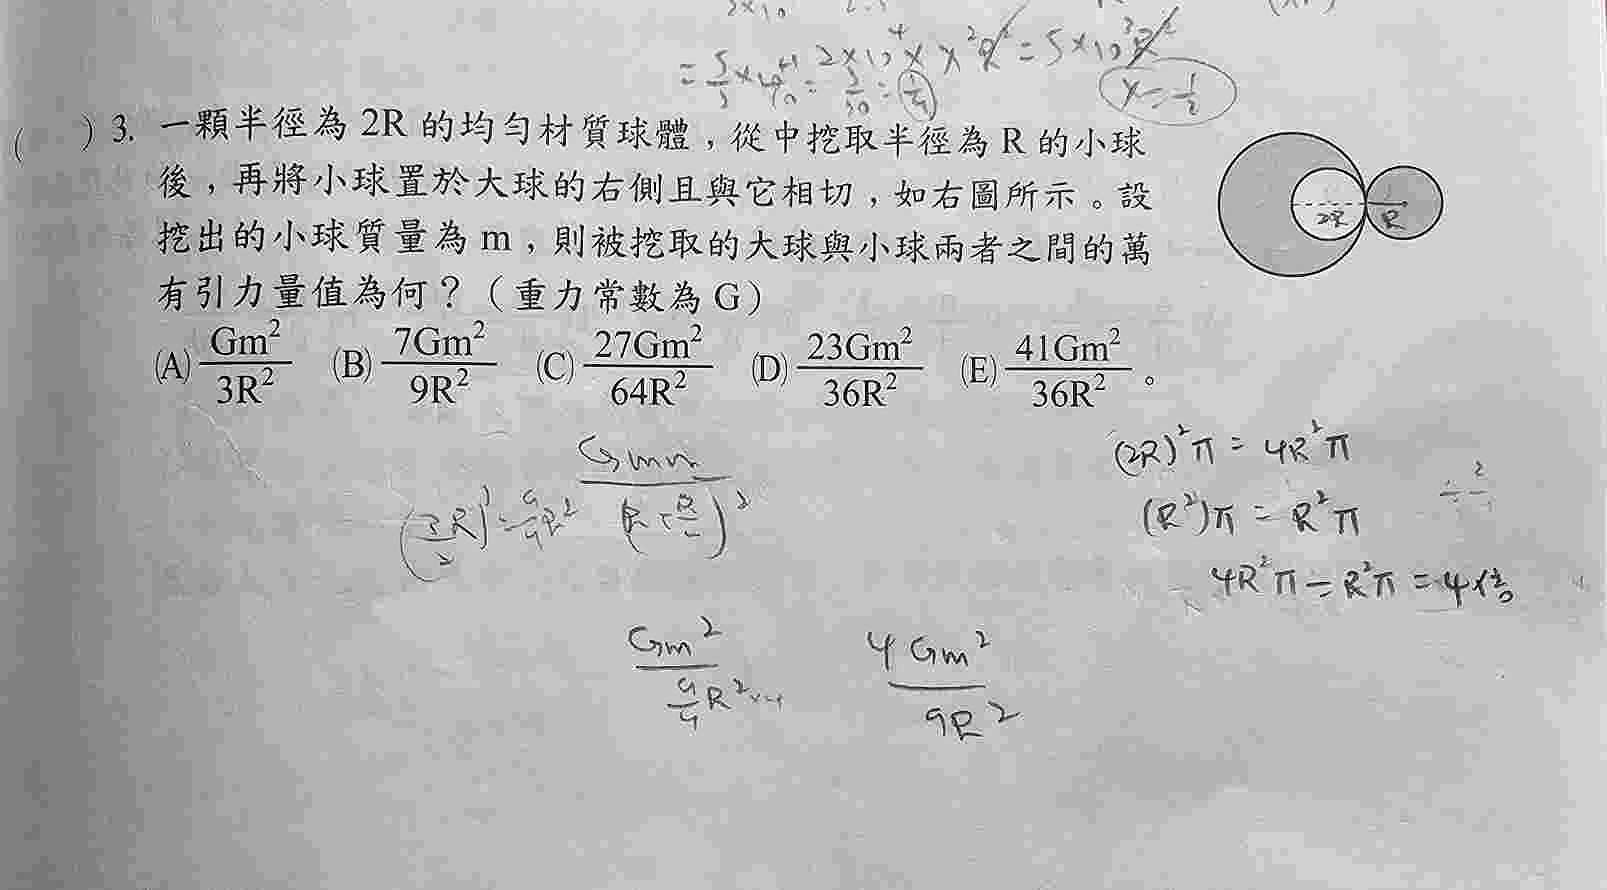 = 5/5 × 4/10 = 5/30 = 1/4
2×10⁴ × x²R² = 5×10³R²
x = 1/2
( ) 3. 一顆半徑為 2R 的均勻材質球體，從中挖取半徑為 R 的小球
後，再將小球置於大球的右側且與它相切，如右圖所示。設
挖出的小球質量為 m，則被挖取的大球與小球兩者之間的萬
有引力量值為何？（重力常數為 G）
(A) Gm²/3R² (B) 7Gm²/9R² (C) 27Gm²/64R² (D) 23Gm²/36R² (E) 41Gm²/36R²。
2R R
(2R)²π = 4R²π
(R²)π = R²π
4R²π - R²π = 4倍
Gmm/(R+R/2)²
(3R/2)² = 9/4R²
Gm²/(9/4R²)
4Gm²/9R²